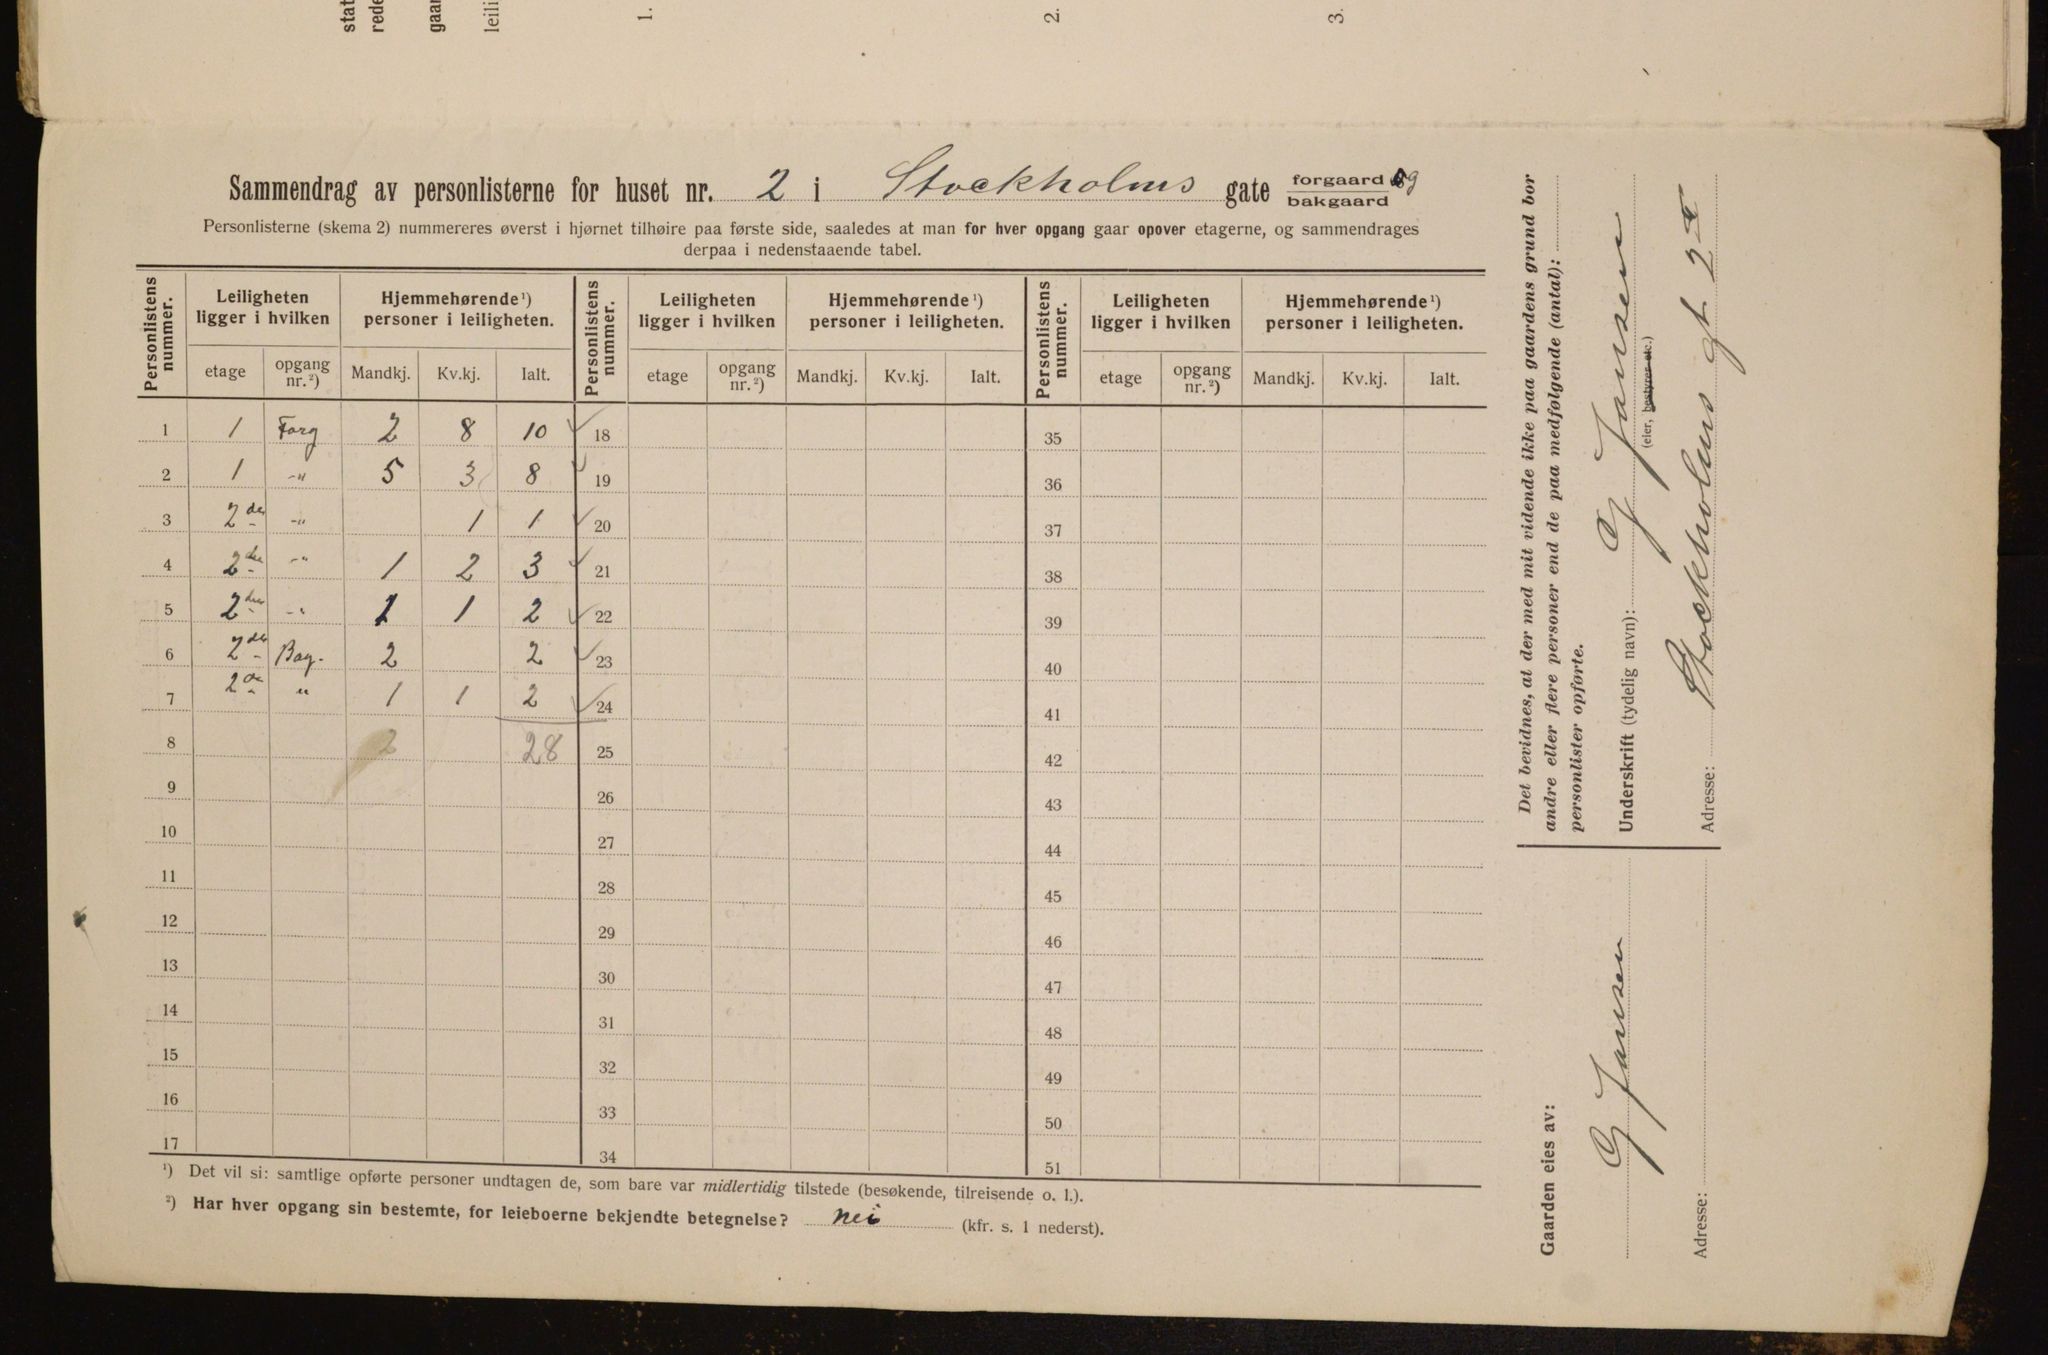 1.
2.
3.
Sammendrag av personlisterne for huset nr. 2 i Stockholms gate forgaard og bakgaard
Personlisterne (skema 2) nummereres øverst i hjørnet tilhøire paa første side, saaledes at man for hver opgang gaar opover etagerne, og sammendrages
derpaa i nedenstaaende tabel.
Personlistens nummer. Leiligheten ligger i hvilken Hjemmehørende¹) personer i leiligheten. Personlistens nummer. Leiligheten ligger i hvilken Hjemmehørende¹) personer i leiligheten. Personlistens nummer. Leiligheten ligger i hvilken Hjemmehørende¹) personer i leiligheten.
etage opgang nr.²) Mandkj. Kv.kj. Ialt. etage opgang nr.²) Mandkj. Kv.kj. Ialt. etage opgang nr.²) Mandkj. Kv.kj. Ialt.
1 1 Forg 2 8 10 18 35
2 1 -"- 5 3 8 19 36
3 2den -"- 1 1 20 37
4 2den -"- 1 2 3 21 38
5 2den -"- 1 1 2 22 39
6 2den Bag. 2 2 23 40
7 2den " 1 1 2 24 41
8 2 28 25 42
9 26 43
10 27 44
11 28 45
12 29 46
13 30 47
14 31 48
15 32 49
16 33 50
17 34 51
¹) Det vil si: samtlige opførte personer undtagen de, som bare var midlertidig tilstede (besøkende, tilreisende o. l.).
²) Har hver opgang sin bestemte, for leieboerne bekjendte betegnelse? nei (kfr. s. 1 nederst).
Det bevidnes, at der med mit vidende ikke paa gaardens grund bor
andre eller flere personer end de paa medfølgende (antal):
personlister opførte.
Underskrift (tydelig navn): G Jansen
(eier, bestyrer etc.)
Adresse: Stockholms gt 2 II
Gaarden eies av:
G Jansen
Adresse: